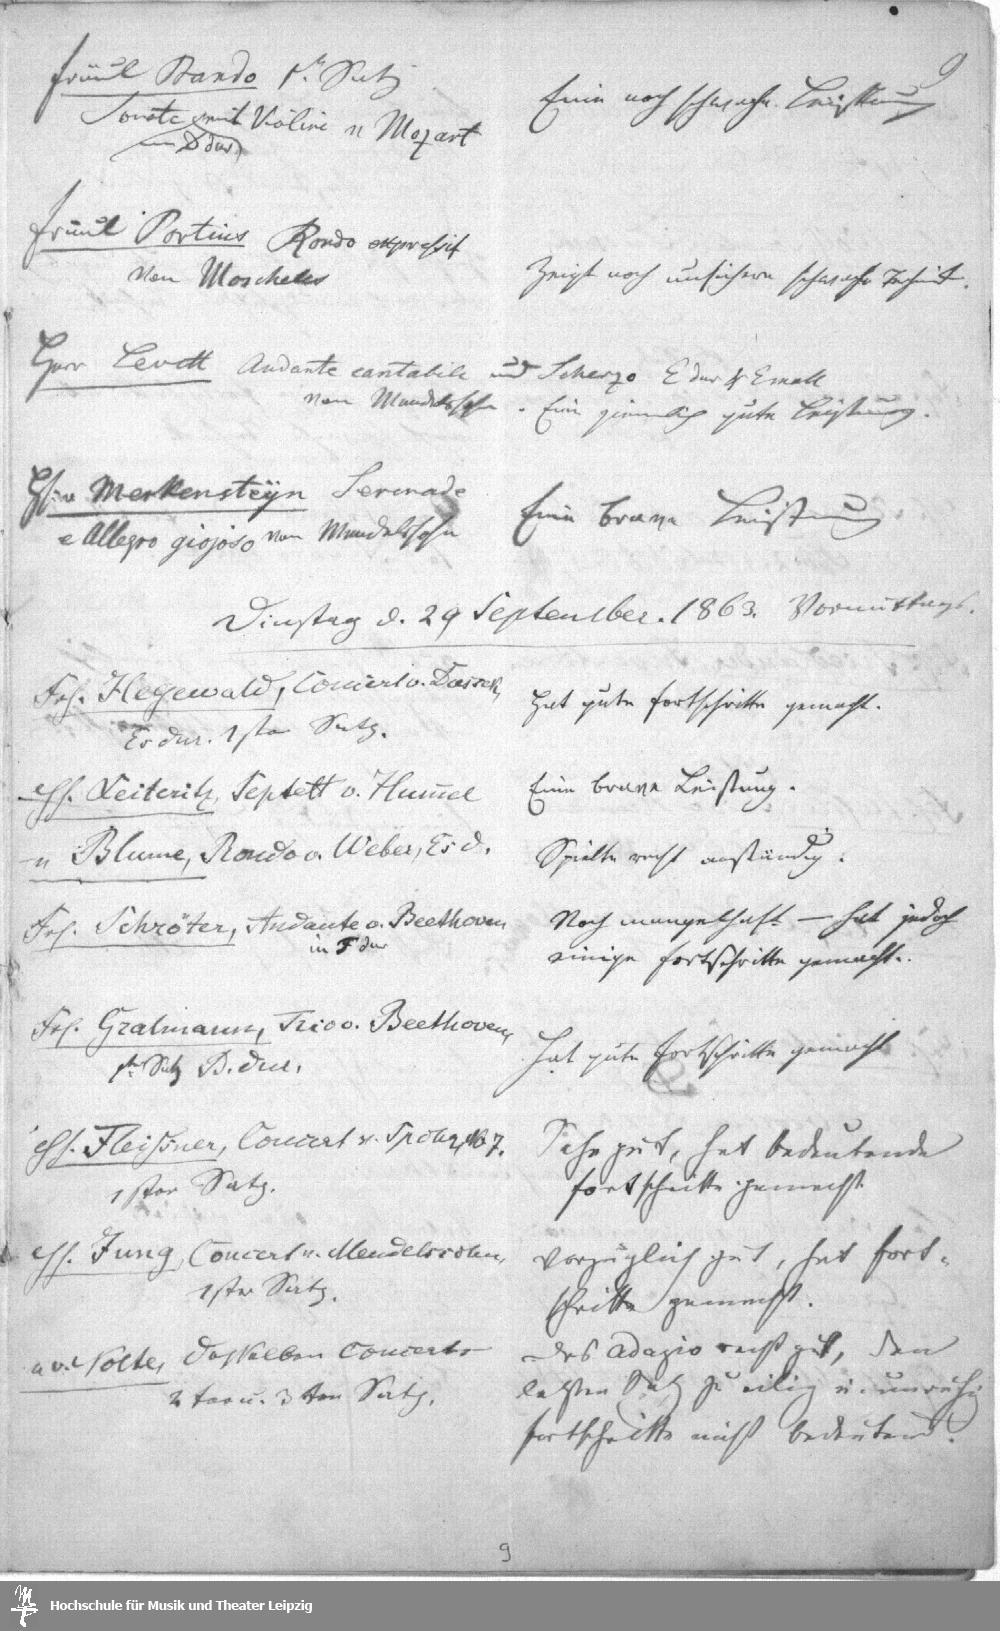 9
Fräul Brando 1r. Satz
Sonate mit Violine v Mozart
in D dur
Eine noch schwache Leistung
Fräul Portius Rondo expressif
von Moscheles
Zeigt noch unsichere schwache Technik.
Herr Levett Andante cantabile und Scherzo E dur & E moll
von Mendelssohn. Eine ziemlich gute Leistung.
H. v Merkensteÿn Serenade
e Allegro giojoso von Mendelssohn
Eine brave Leistung
Dinstag d. 29 September. 1863. Vormittags.
Frl. Hegewald, Concert v. Dussek,
Es dur. 1ster Satz.
Hat gute Fortschritte gemacht.
H. Leiteritz, Septett v. Hum̄el
Eine brave Leistung.
" Blume, Rondo v. Weber, Es d.
Spielte recht anständig.
Frl. Schröter, Andante v. Beethoven
in F dur
Noch mangelhaft – hat jedoch
einige Fortschritte gemacht.
Frl. Gralmann, Trio v. Beethoven,
1r Satz B. dur.
Hat gute Fortschritte gemacht
H. Fleißner, Concert v. Spohr, No 7.
1ster Satz.
Sehr gut, hat bedeutende
Fortschritte gemacht
H. Jung, Concert v. Mendelssohn,
1ster Satz.
Vorzüglich gut, hat Fort-
schritte gemacht.
" v. Nolte, Dasselben Concerts
2ter u. 3ter Satz.
Das Adagio recht gut, den
letzten Satz zu eilig u. unruhig
Fortschritte nicht bedeutend.
9
Hochschule für Musik und Theater Leipzig